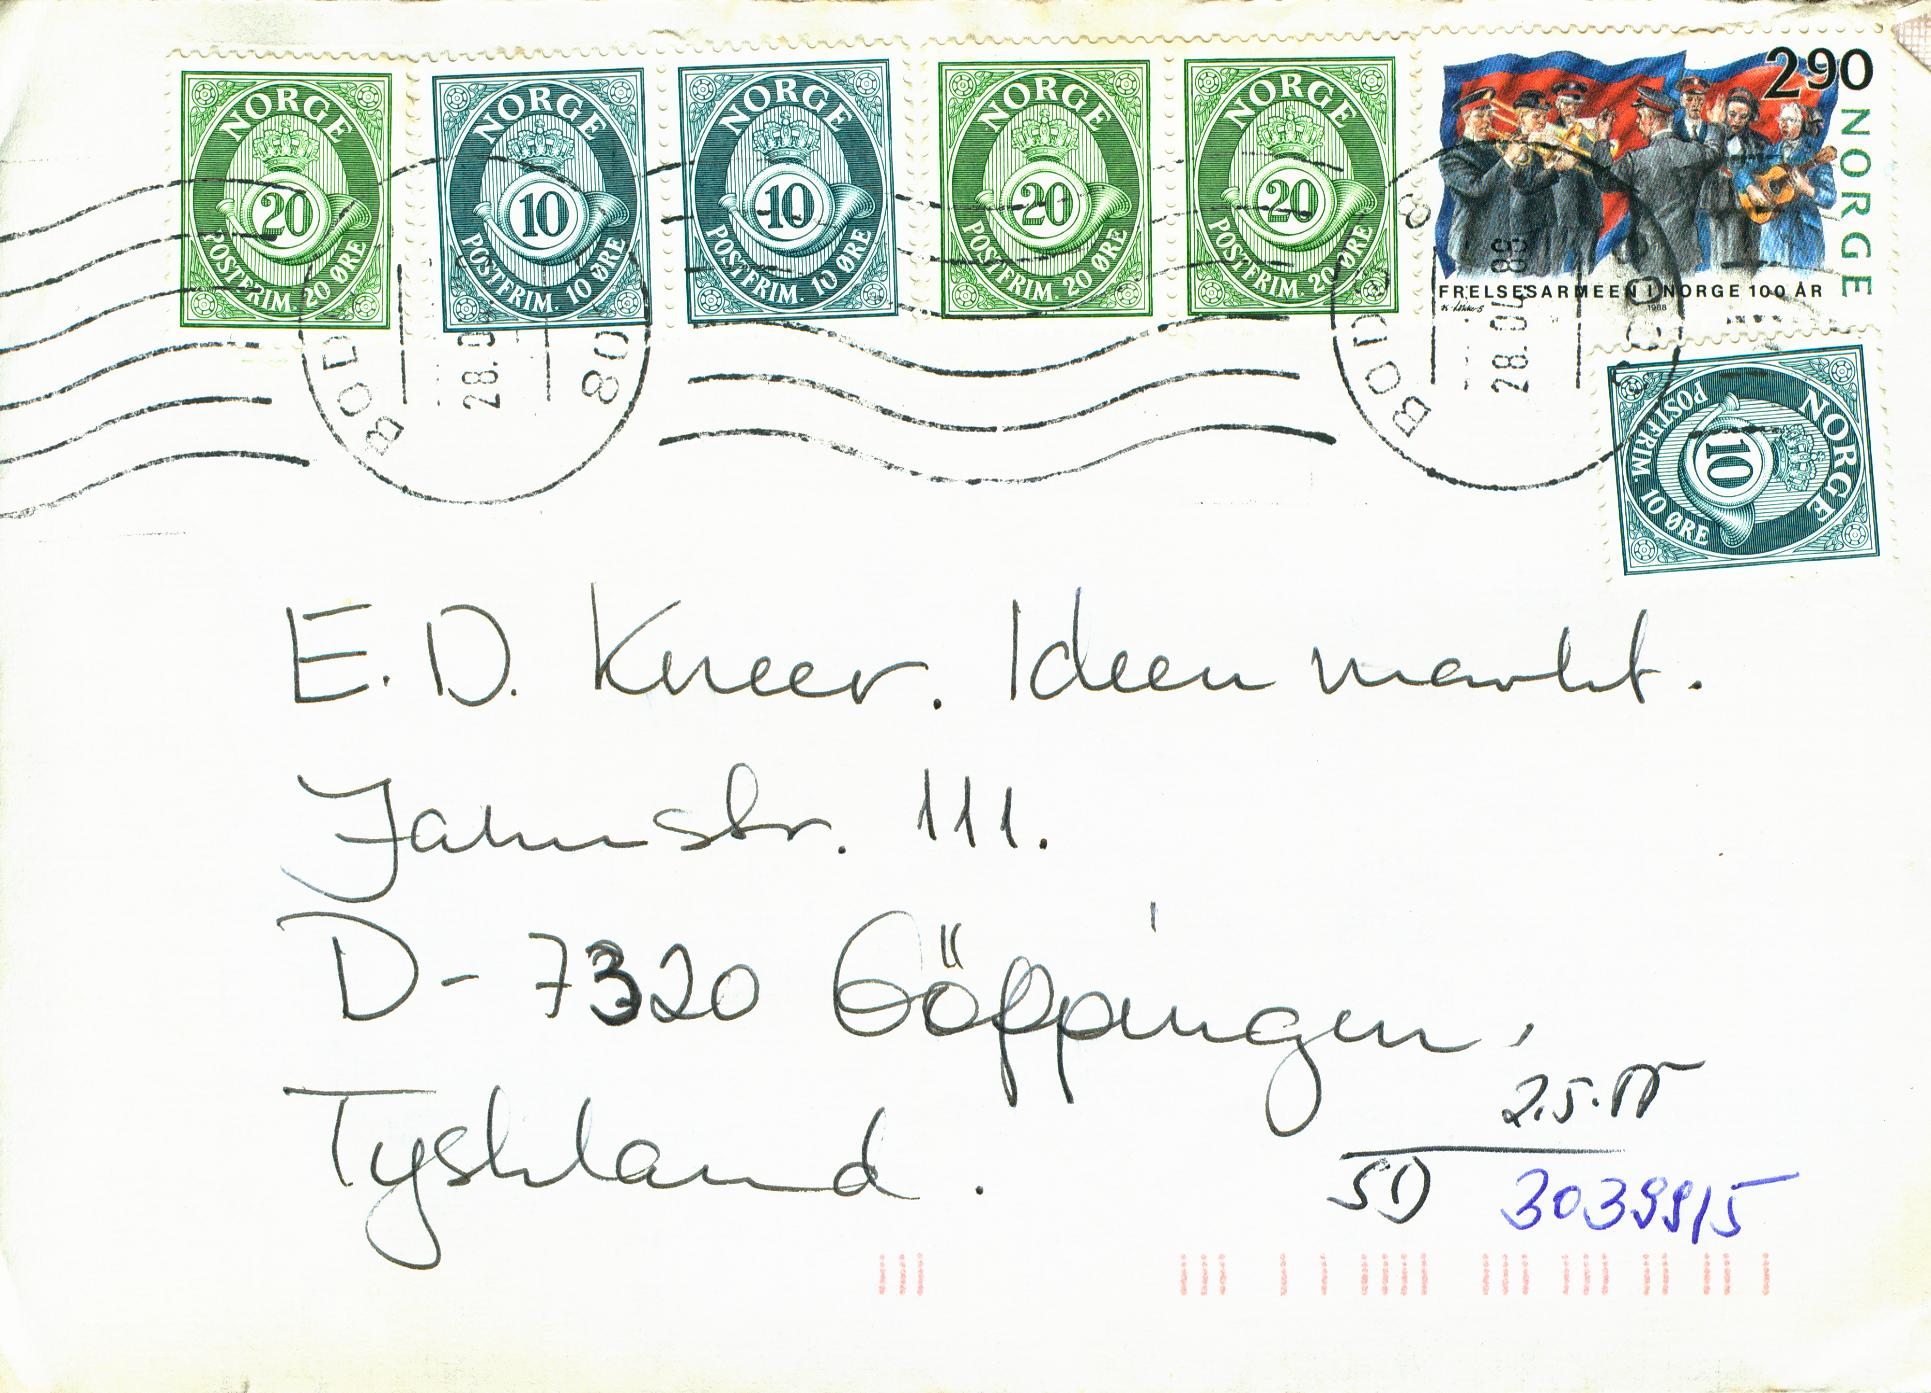 NORGE
20
POSTFRIM. 20 ØRE
NORGE
10
POSTFRIM. 10 ØRE
NORGE
10
POSTFRIM. 10 ØRE
NORGE
20
POSTFRIM. 20 ØRE
NORGE
20
POSTFRIM. 20 ØRE
290
NORGE
FRELSESARMEEN I NORGE 100 ÅR
1988
NORGE
10
POSTFRIM. 10 ØRE
28.0
80
28.04.88
E. D. Kneer. Ideen markt.
Jahnstr. 111.
D-7320 Göppingen,
Tyskland.
2.5.88
SD 30399/5